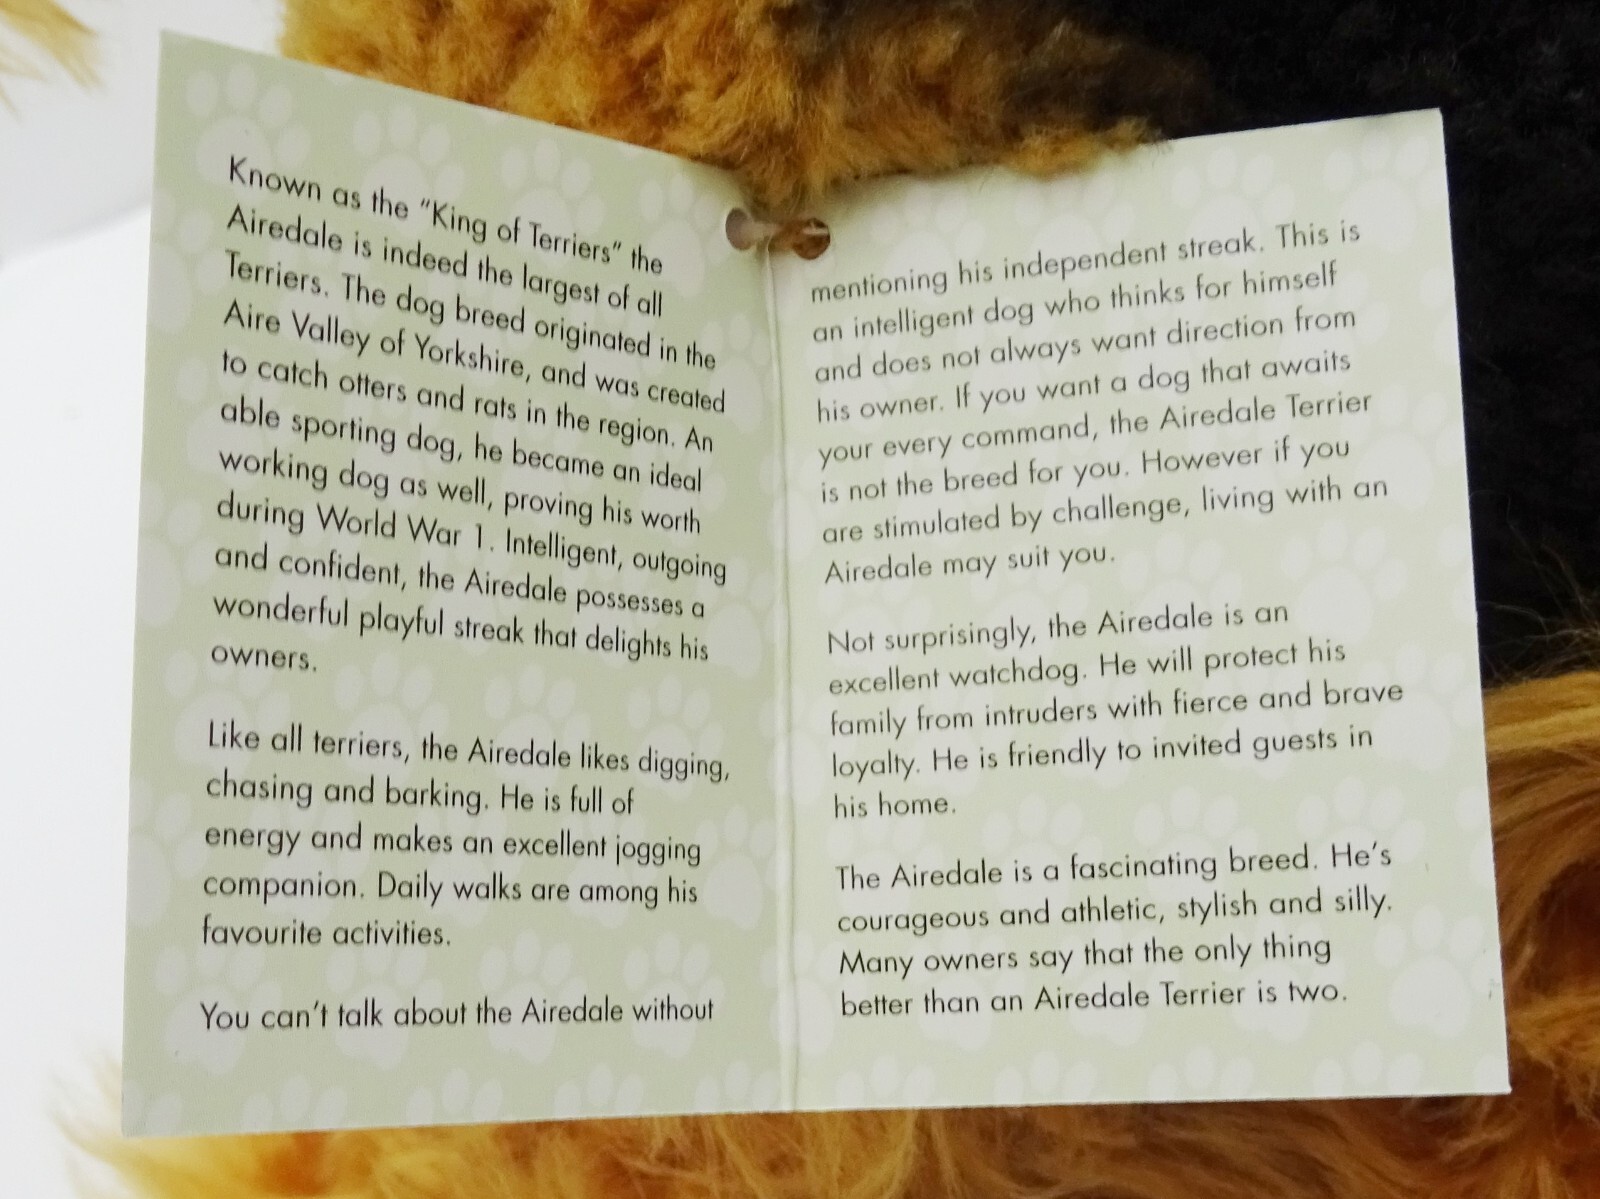 Known as the "King of Terriers" the
Airedale is indeed the largest of all
Terriers. The dog breed originated in the
Aire Valley of Yorkshire, and was created
to catch otters and rats in the region. An
able sporting dog, he became an ideal
working dog as well, proving his worth
during World War 1. Intelligent, outgoing
and confident, the Airedale possesses a
wonderful playful streak that delights his
owners.
Like all terriers, the Airedale likes digging,
chasing and barking. He is full of
energy and makes an excellent jogging
companion. Daily walks are among his
favourite activities.
You can't talk about the Airedale without
mentioning his independent streak. This is
an intelligent dog who thinks for himself
and does not always want direction from
his owner. If you want a dog that awaits
your every command, the Airedale Terrier
is not the breed for you. However if you
are stimulated by challenge, living with an
Airedale may suit you.
Not surprisingly, the Airedale is an
excellent watchdog. He will protect his
family from intruders with fierce and brave
loyalty. He is friendly to invited guests in
his home.
The Airedale is a fascinating breed. He's
courageous and athletic, stylish and silly.
Many owners say that the only thing
better than an Airedale Terrier is two.